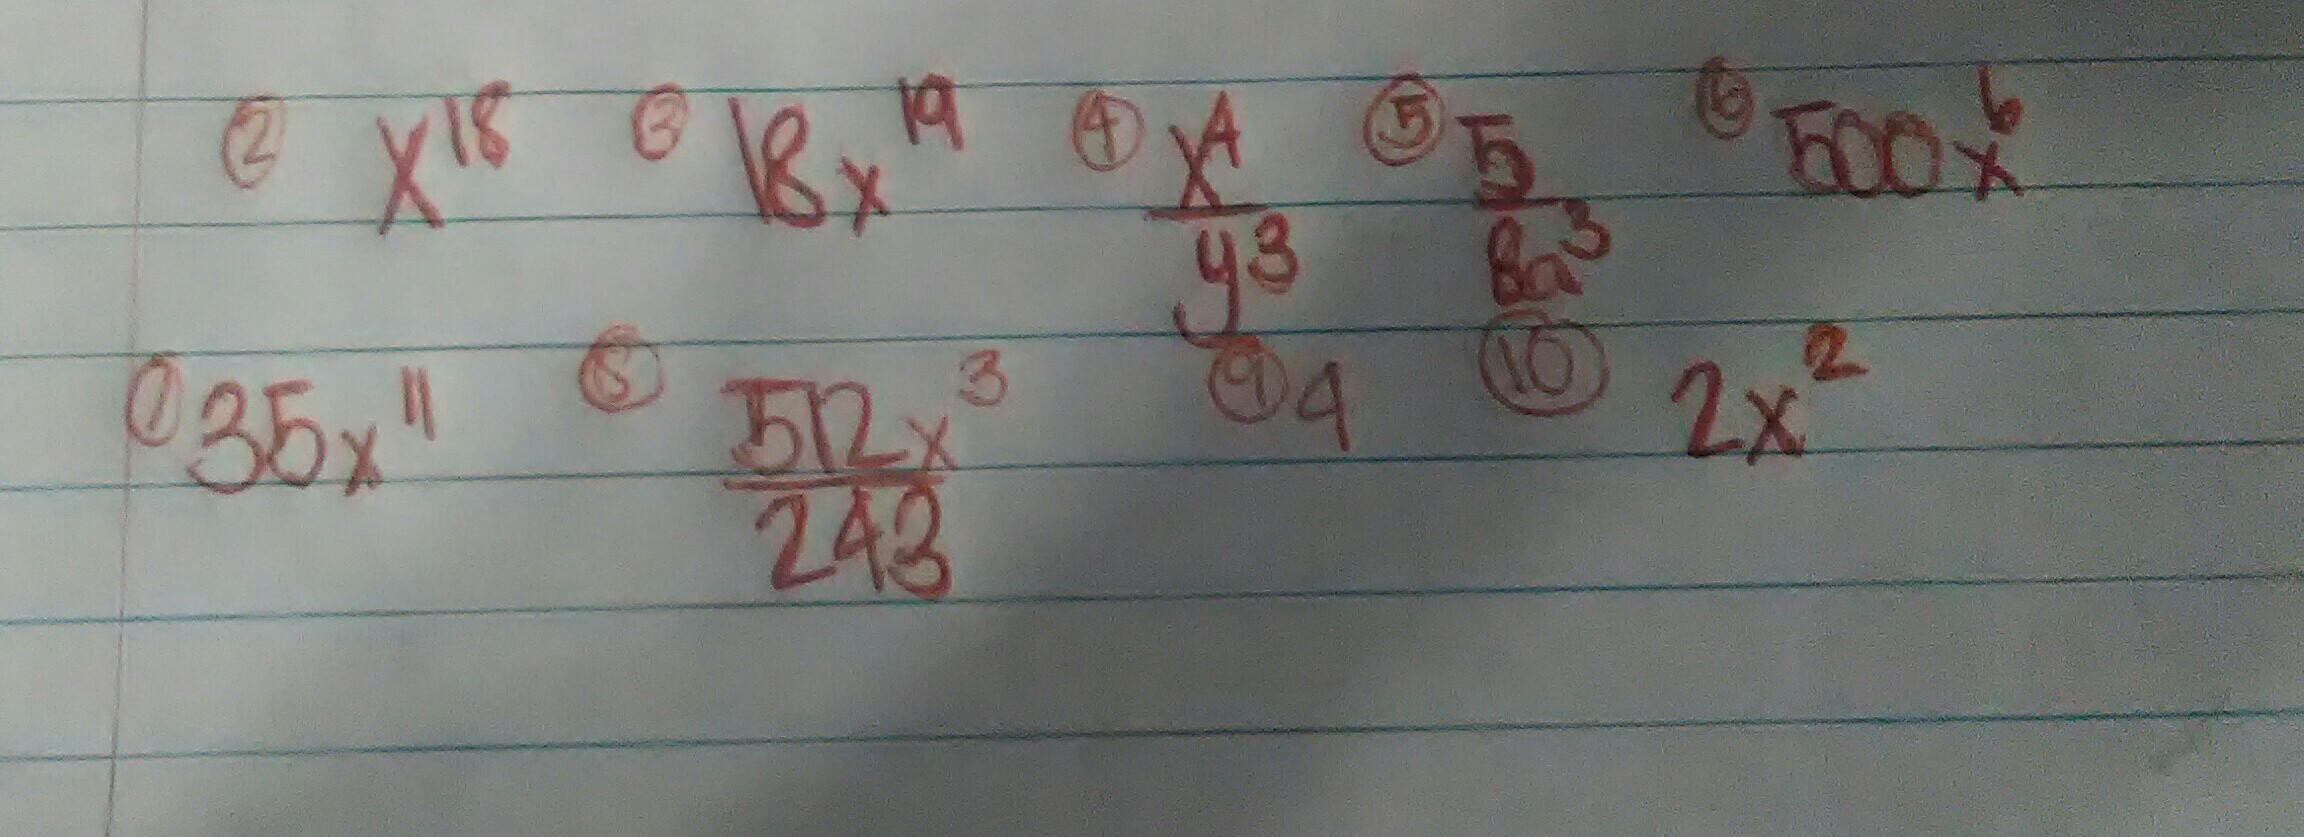 ② x¹⁸ ③ 18x¹⁹ ④ x⁴/y³ ⑤ 5/8a³ ⑥ 500x⁶
⑦ 35x¹¹ ⑧ 512x³/243 ⑨ 4 ⑩ 2x²